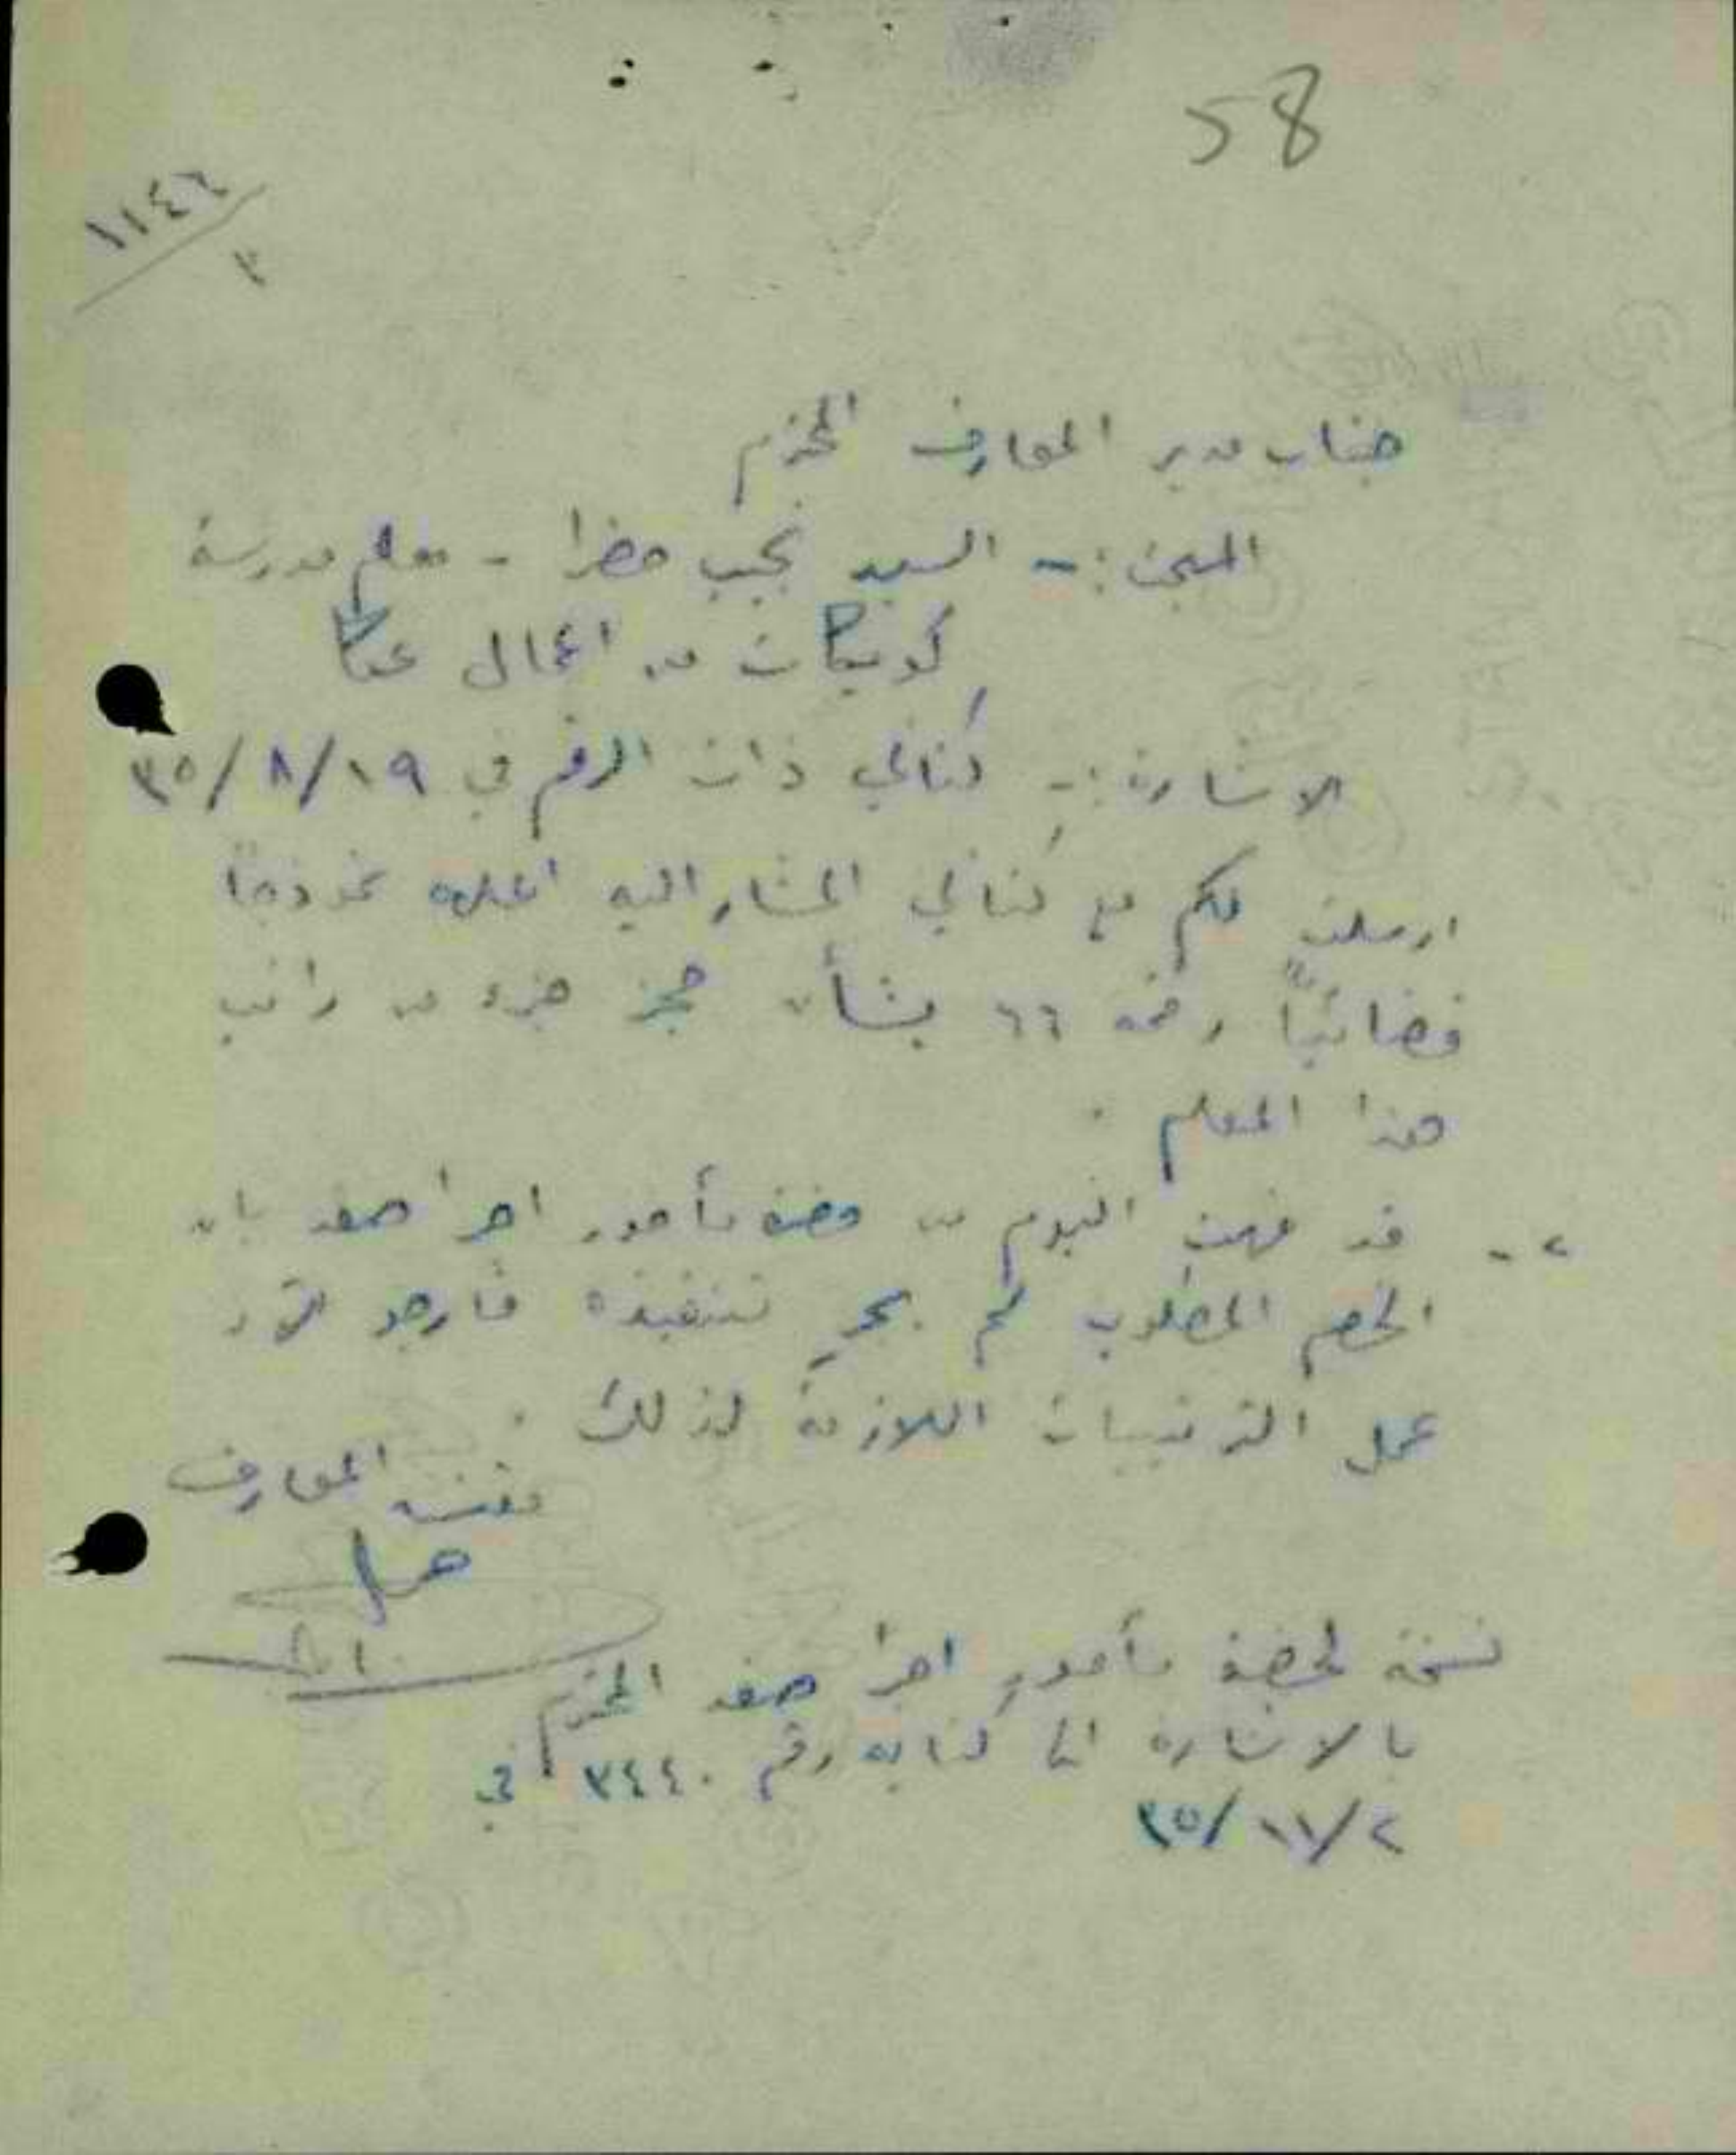 58
١١٤٦/٣
جناب مدير المعارف المحترم
المبحث :- السيد نجيب خضرا - معلم مدرسة
كويكات من اعمال عكا
الاشارة :- كتابي ذات الرقم في ١٩/٨/٣٥
ارسلت لكم مع كتابي المشار اليه اعلاه نموذجاً
قضائياً رقمه ٦٦ بشأن حجز جزء من راتب
هذا المعلم .
٢- قد فهمت اليوم من حضرة مأمور اجرا صفد بان
الخصم المطلوب لم يجرِ تنفيذه فارجو
عمل الترتيبات اللازمة لذلك .
مفتش المعارف
نسخة لحضرة مأمور اجرا صفد المحترم
بالاشارة الى كتابه رقم ٣٤٤٠ في
٢/١١/٣٥